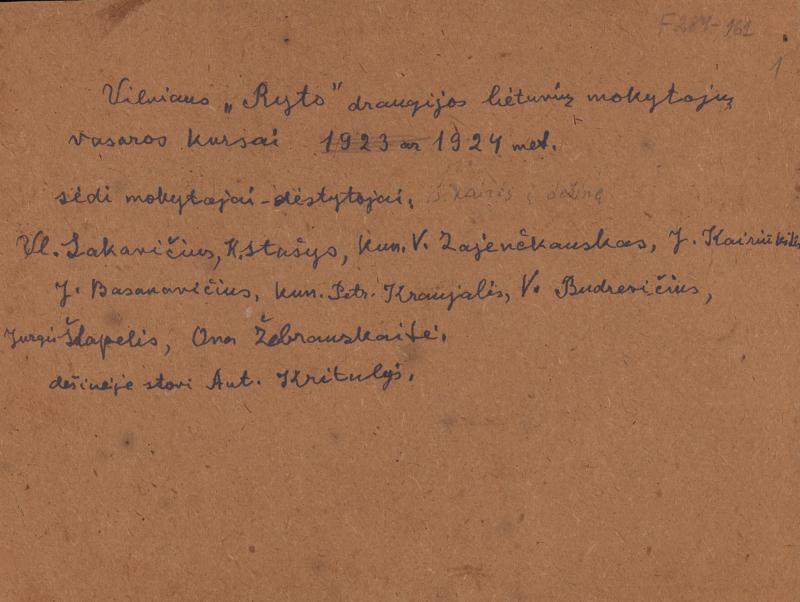 F 284-161
1
Vilniaus „Ryto" draugijos lietuvių mokytojų
vasaros kursai 1923 ar 1924 met.
sėdi mokytojai-dėstytojai, iš kairės į dešinę
Vl. Zakavičius, K. Stašys, kun. V. Zajenčkauskas, J. Kairiūkštis
J. Basanavičius, kun. Petr. Kraujalis, V. Budrevičius,
Jurgis Šlapelis, Ona Žebrauskaitė.
dešinėje stovi Ant. Krutulys.